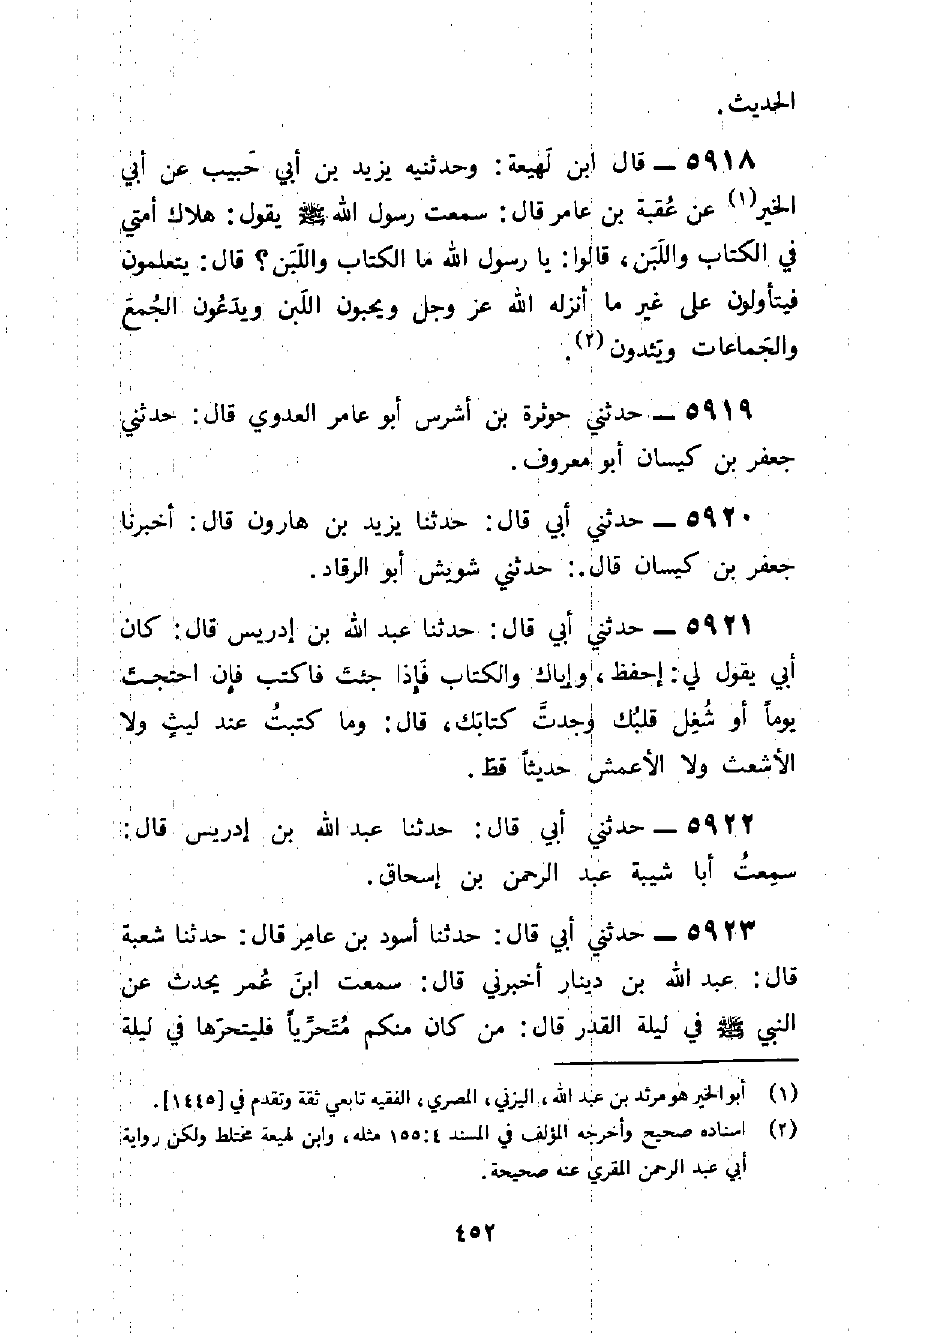 الحديث.
٥٩١٨ ــ قال ابن لَهيعة: وحدثنيه يزيد بن أبي حَبيب عن أبي
الخير(١) عن عُقبة بن عامر قال: سمعت رسول الله ﷺ يقول: هلاك أمتي
في الكتاب واللَّبَن، قالوا: يا رسول الله ما الكتاب واللَّبَن؟ قال: يتعلمون
فيتأولون على غير ما أنزله الله عز وجل ويحبون اللَّبن ويدَعُون الجُمعَ
والجَماعات ويَبْدون(٢).
٥٩١٩ ــ حدثني حوثرة بن أشرس أبو عامر العدوي قال: حدثني
جعفر بن كيسان أبو معروف.
٥٩٢٠ ــ حدثني أبي قال: حدثنا يزيد بن هارون قال: أخبرنا
جعفر بن كيسان قال.: حدثني شويش أبو الرقاد.
٥٩٢١ ــ حدثني أبي قال: حدثنا عبد الله بن إدريس قال: كان
أبي يقول لي: إحفظ، وإياك والكتاب فَإذا جئتَ فاكتب فإن احتجتَ
يوماً أو شُغِل قلبُك وجدتَّ كتابَك، قال: وما كتبتُ عند ليثٍ ولا
الأشعث ولا الأعمش حديثاً قطّ.
٥٩٢٢ ــ حدثني أبي قال: حدثنا عبد الله بن إدريس قال:
سمِعتُ أبا شيبة عبد الرحمن بن إسحاق.
٥٩٢٣ ــ حدثني أبي قال: حدثنا أسود بن عامِر قال: حدثنا شعبة
قال: عبد الله بن دينار أخبرني قال: سمعت ابنَ عُمر يحدث عن
النبي ﷺ في ليلة القدر قال: من كان منكم مُتَحرِّياً فليتحرّها في ليلة
(١) أبو الخير هو مرثد بن عبد الله، اليزني، المصري، الفقيه تابعي ثقة وتقدم في [١٤٤٥].
(٢) اسناده صحيح وأخرجه المؤلف في المسند ٤:١٥٥ مثله، وابن لهيعة مختلط ولكن رواية
أبي عبد الرحمن المقري عنه صحيحة.
٤٥٢